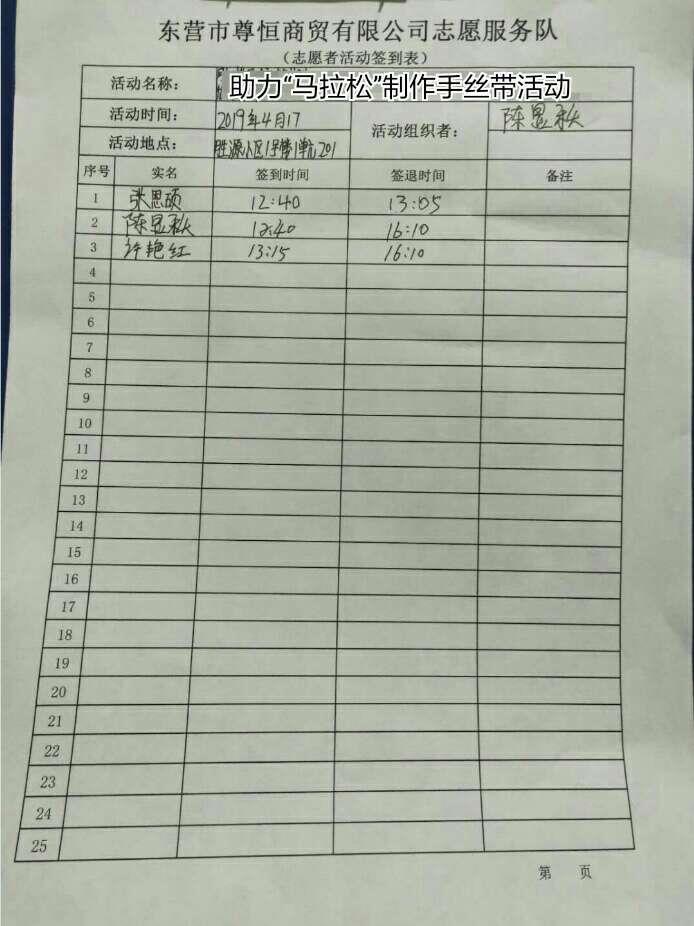 东营市尊恒商贸有限公司志愿服务队
（志愿者活动签到表）
活动名称： 助力“马拉松”制作手丝带活动
活动时间： 2019年4月17 活动组织者： 陈显秋
活动地点： 胜源小区1号楼1单元201
序号 实名 签到时间 签退时间 备注
1 张思硕 12:40 13:05
2 陈显秋 12:40 16:10
3 许艳红 13:15 16:10
4
5
6
7
8
9
10
11
12
13
14
15
16
17
18
19
20
21
22
23
24
25
第 页